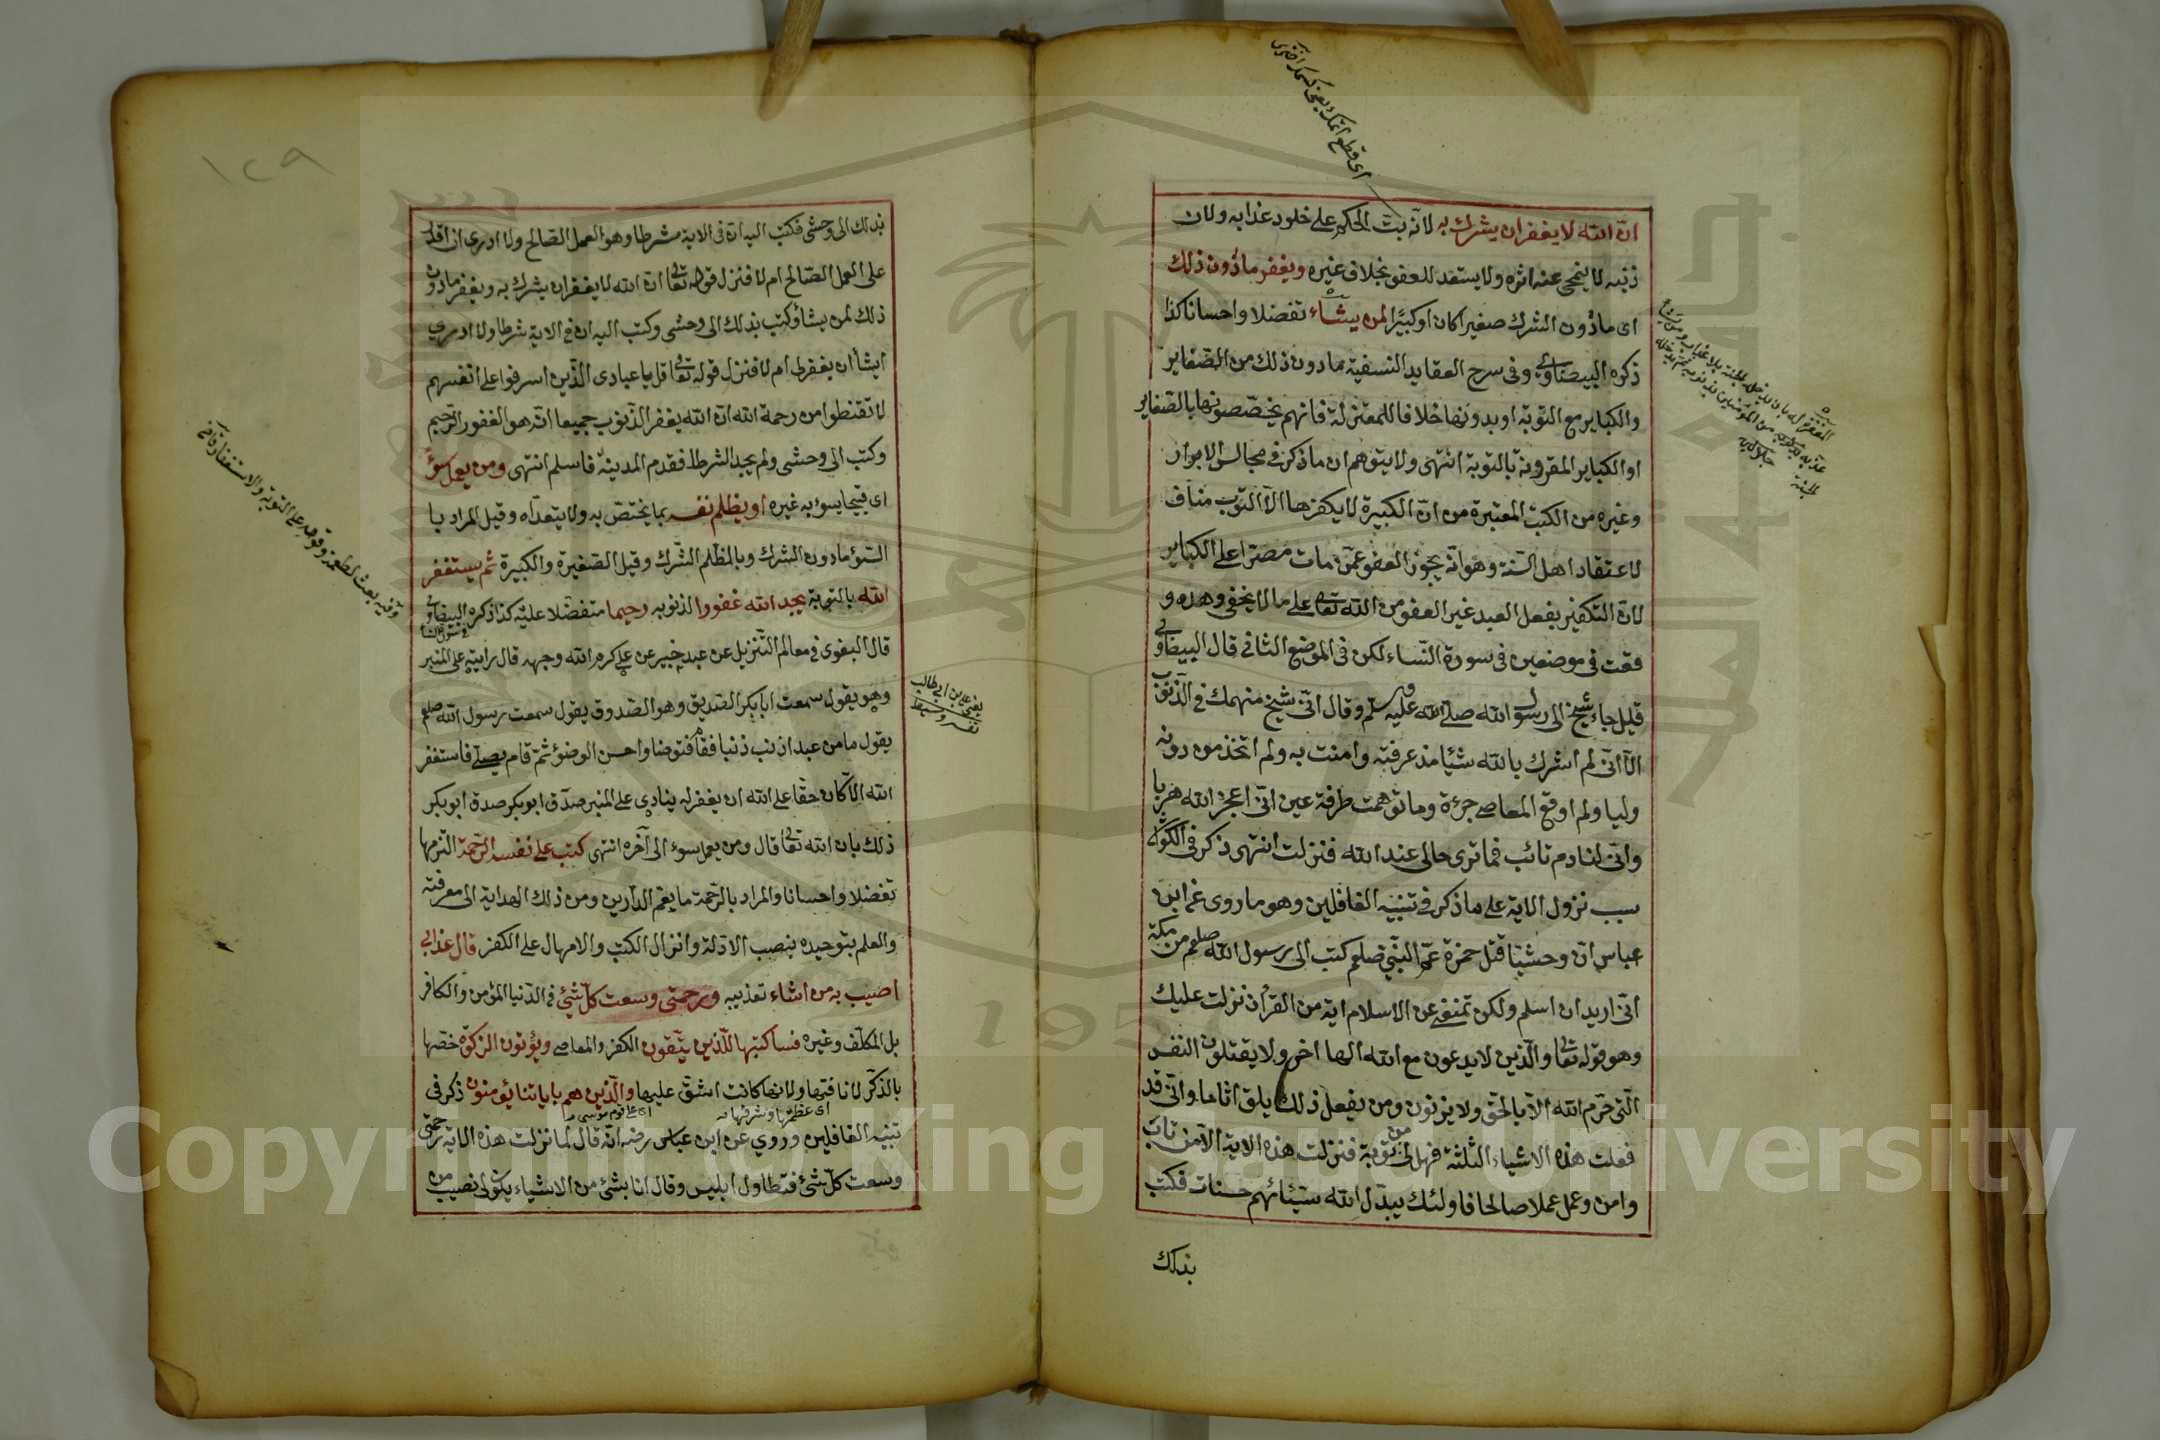 ان الله لا يغفر ان يشرك به لانه بت الحكم على خلود عذابه ولان
ذنبه لا ينمحى عنه اثره ولا يستعد للعفو بخلاف غيره ويغفر ما دون ذلك
اى ما دون الشرك صغيرا كان او كبيرا لمن يشاء تفضلا واحسانا كذا
ذكره البيضاوى وفى سرح العقايد النسفية ما دون ذلك من الصغاير
والكباير مع التوبة او بدونها خلافا للمعتزلة فانهم يخصصونها بالصغاير
او الكباير المقرونة بالتوبة انتهى ولا يتوهم ان ما ذكر فى مجالس الابرار
وغيره من الكتب المعتبرة من ان الكبيرة لا يكفرها الا التوب مناف
لاعتقاد اهل السنة وهو انه يجوز العفو عمن مات مصرا على الكباير
لان التكفير بفعل العبد غير العفو من الله تعالى على ما لا يخفى وهذه و
قعت فى موضعين فى سورة النساء لكن فى الموضع الثانى قال البيضاوى
قيل جاء شيخ الى رسول الله صلى الله عليه وسلم وقال انى شيخ منهمك فى الذنوب
الا انى لم اشرك بالله شيئا منذ عرفته وامنت به ولم اتخذ من دونه
وليا ولم اوقع المعاصى جرءة وما توهمت طرفة عين انى اعجز الله هربا
وانى لنادم تائب فما ترى حالى عند الله فنزلت انتهى ذكر فى
سبب نزول الاية على ما ذكر فى تنبيه الغافلين وهو ما روى عن ابن
عباس ان وحشيا قتل حمزة عم النبى صلعم كتب الى رسول الله صلعم من مكة
انى اريد ان اسلم ولكن تمنعنى عن الاسلام اية من القرآن نزلت عليك
وهو قوله تعالى والذين لا يدعون مع الله الها اخر ولا يقتلون النفس
التى حرم الله الا بالحق ولا يزنون ومن يفعل ذلك يلق اثاما وانى قد
فعلت هذه الاشياء الثلثة فهل لى من توبة فنزلت هذه الاية الا من تاب
وامن وعمل عملا صالحا فاولئك يبدل الله سيئاتهم حسنات فكتب
بذلك
اى قطع
بذلك الى وحشى فكتب اليه ان فى الاية شرطا وهو العمل الصالح ولا ادرى انى اقدر
على العمل الصالح ام لا فنزل قوله تعالى ان الله لا يغفر ان يشرك به ويغفر ما دون
ذلك لمن يشاء وكتب بذلك الى وحشى وكتب اليه ان فى الاية شرطا ولا ادرى
ايشأ ان يغفر لى ام لا فنزل قوله تعالى قل يا عبادى الذين اسرفوا على انفسهم
لا تقنطوا من رحمة الله ان الله يغفر الذنوب جميعا انه هو الغفور الرحيم
وكتب الى وحشى ولم يجد الشرط فقدم المدينة فاسلم انتهى ومن يعمل سوأ
اى قبيحا يسؤ به غيره او يظلم نفسه بما يختص به ولا يتعداه وقيل المراد با
السؤ ما دون الشرك وبالظلم الشرك وقيل الصغيرة والكبيرة ثم يستغفر
الله بالتوبة يجد الله غفورا لذنوبه رحيما متفضلا عليه كذا ذكره البيضاوى
قال البغوى فى معالم التنزيل عن عبد خير عن على كرم الله وجهه قال رايته على المنبر
وهو يقول سمعت ابا بكر الصديق وهو الصدوق يقول سمعت رسول الله صلعم
يقول ما من عبد اذنب ذنبا فقام فتوضا واحسن الوضؤ ثم قام يصلى فاستغفر
الله الا كان حقا على الله ان يغفر له ينادى على المنبر صدق ابو بكر صدق ابو بكر
ذلك بان الله تعالى قال ومن يعمل سوء الى آخره انتهى كتب على نفسه الرحمة التزمها
تفضلا واحسانا والمراد بالرحمة ما يعم الدارين ومن ذلك الهداية الى معرفته
والعلم بتوحيده بنصب الادلة وانزال الكتب والامهال على الكفر قال عذابى
اصيب به من اشاء تعذيبه ورحمتى وسعت كل شئ فى الدنيا المؤمن والكافر
بل المكلف وغيره فساكتبها للذين يتقون الكفر والمعاصى ويؤتون الزكوة خصها
بالذكر لانافتها ولانها كانت اشق عليهم والذين هم باياتنا يؤمنون ذكر فى
تنبيه الغافلين وروي عن ابن عباس رضه انه قال لما نزلت هذه الاية رحمتى
وسعت كل شئ فتطاول ابليس وقال انا بشئ من الاشياء يكون لى نصيب من
يعنى على بن ابى طالب
١٢٩
Copyright © King Saud University
1957